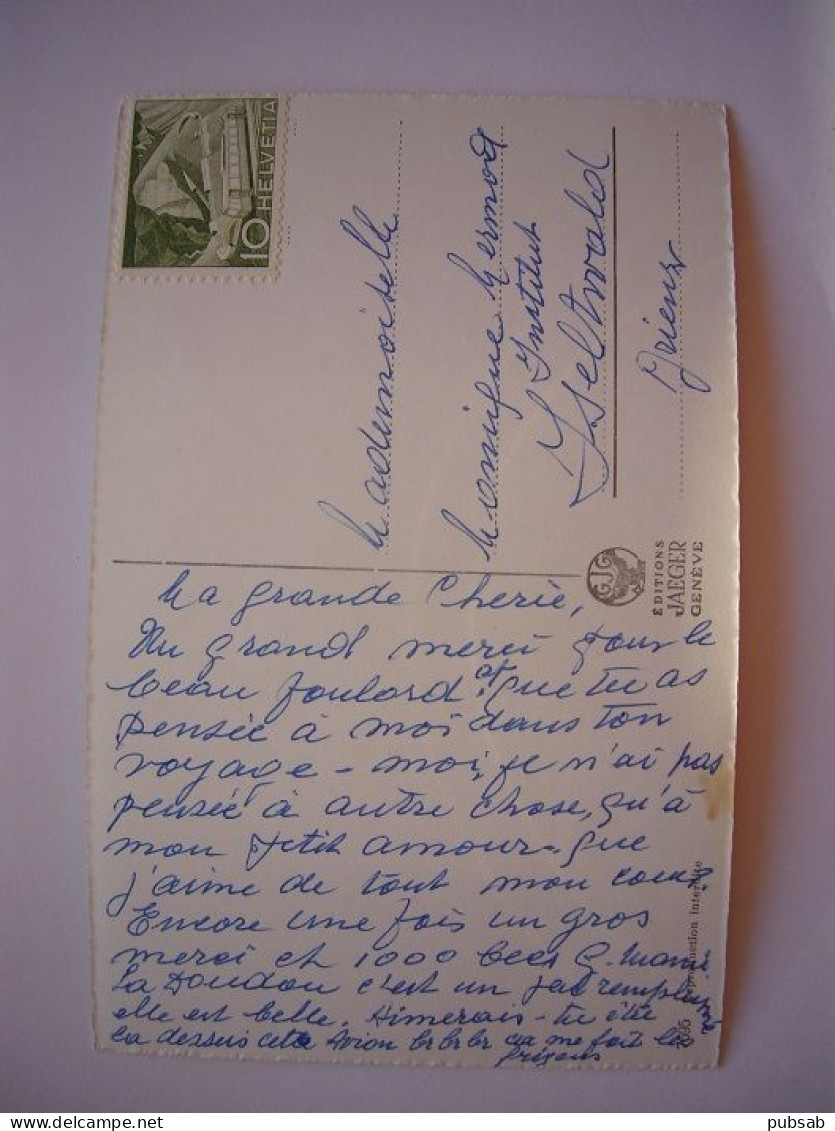 HELVETIA
10
Mademoiselle
Monique Hermod
Institut
Iseltwald
Brienz
GJG
ÉDITIONS
JAEGER
GENÈVE
Ma grande Cherie,
Un grand merci pour le
beau foulard et que tu as
pensée à moi dans ton
voyage - moi, je n'ai pas
pensée à autre chose, qu'à
mon petit amour - que
j'aime de tout mon coeur
Encore une fois un gros
merci et 1000 becs G. Mama
La Doudou c'est un
elle est belle. Aimerais-tu être
la dessus cette Avion br br br ça me fait les
frissons
production interdite
pubsab